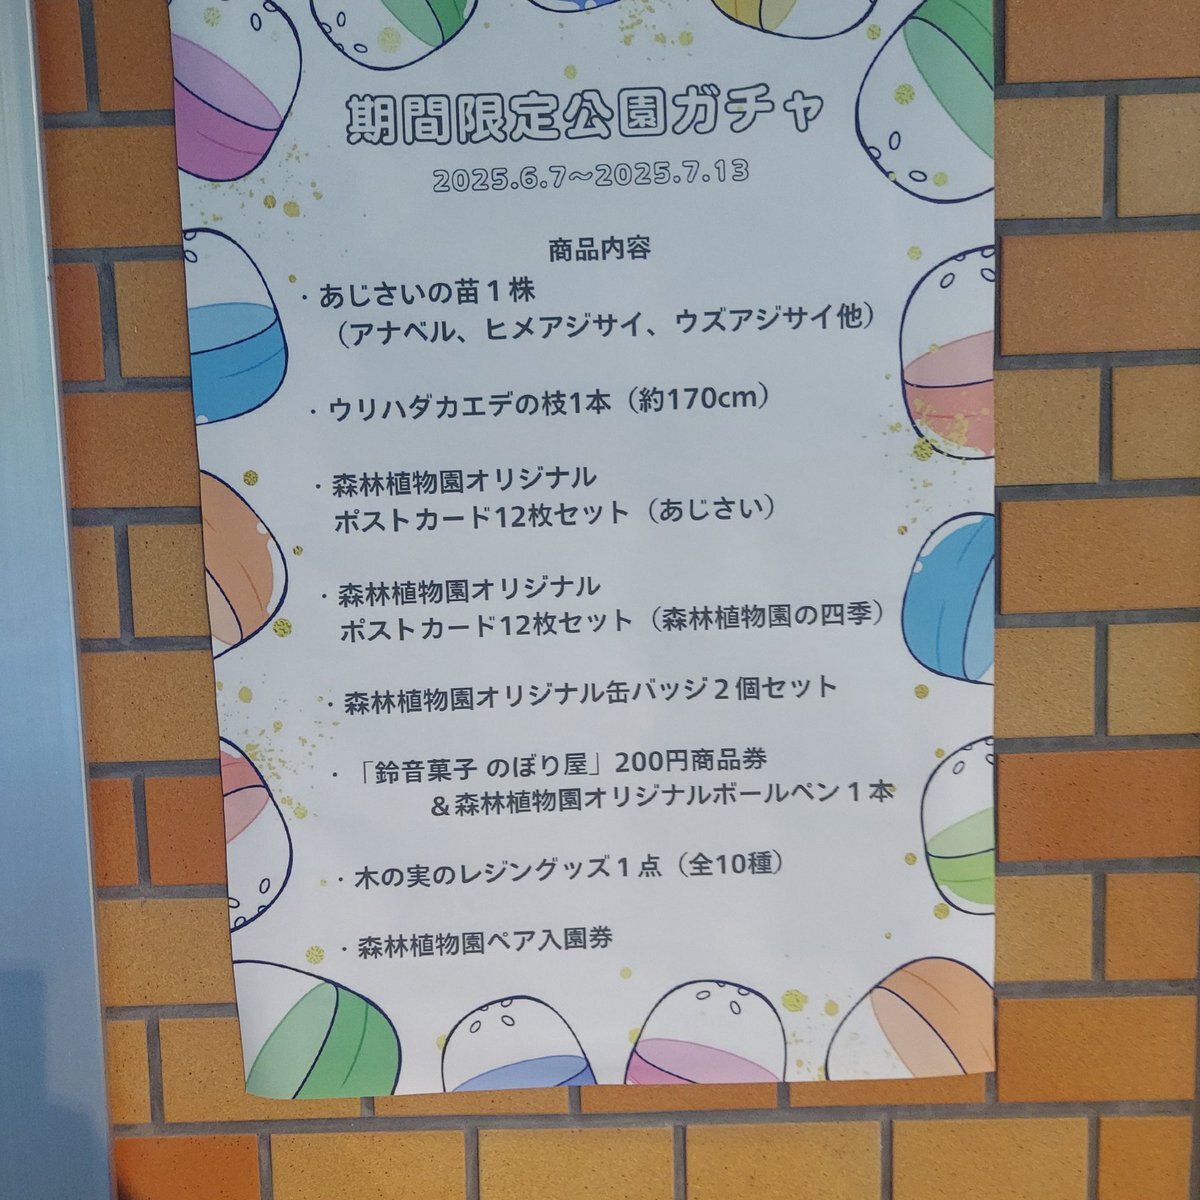 期間限定公園ガチャ
2025.6.7〜2025.7.13
商品内容
・あじさいの苗1株
（アナベル、ヒメアジサイ、ウズアジサイ他）
・ウリハダカエデの枝1本（約170cm）
・森林植物園オリジナル
ポストカード12枚セット（あじさい）
・森林植物園オリジナル
ポストカード12枚セット（森林植物園の四季）
・森林植物園オリジナル缶バッジ2個セット
・「鈴音菓子 のぼり屋」200円商品券
＆森林植物園オリジナルボールペン1本
・木の実のレジングッズ1点（全10種）
・森林植物園ペア入園券